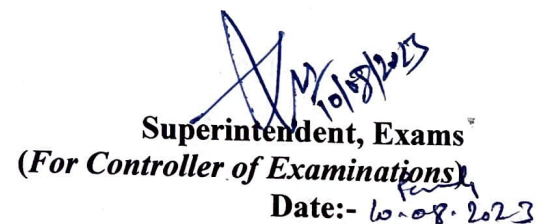 10/08/2023
Superintendent, Exams
(For Controller of Examinations)
Date:- 10.08.2023